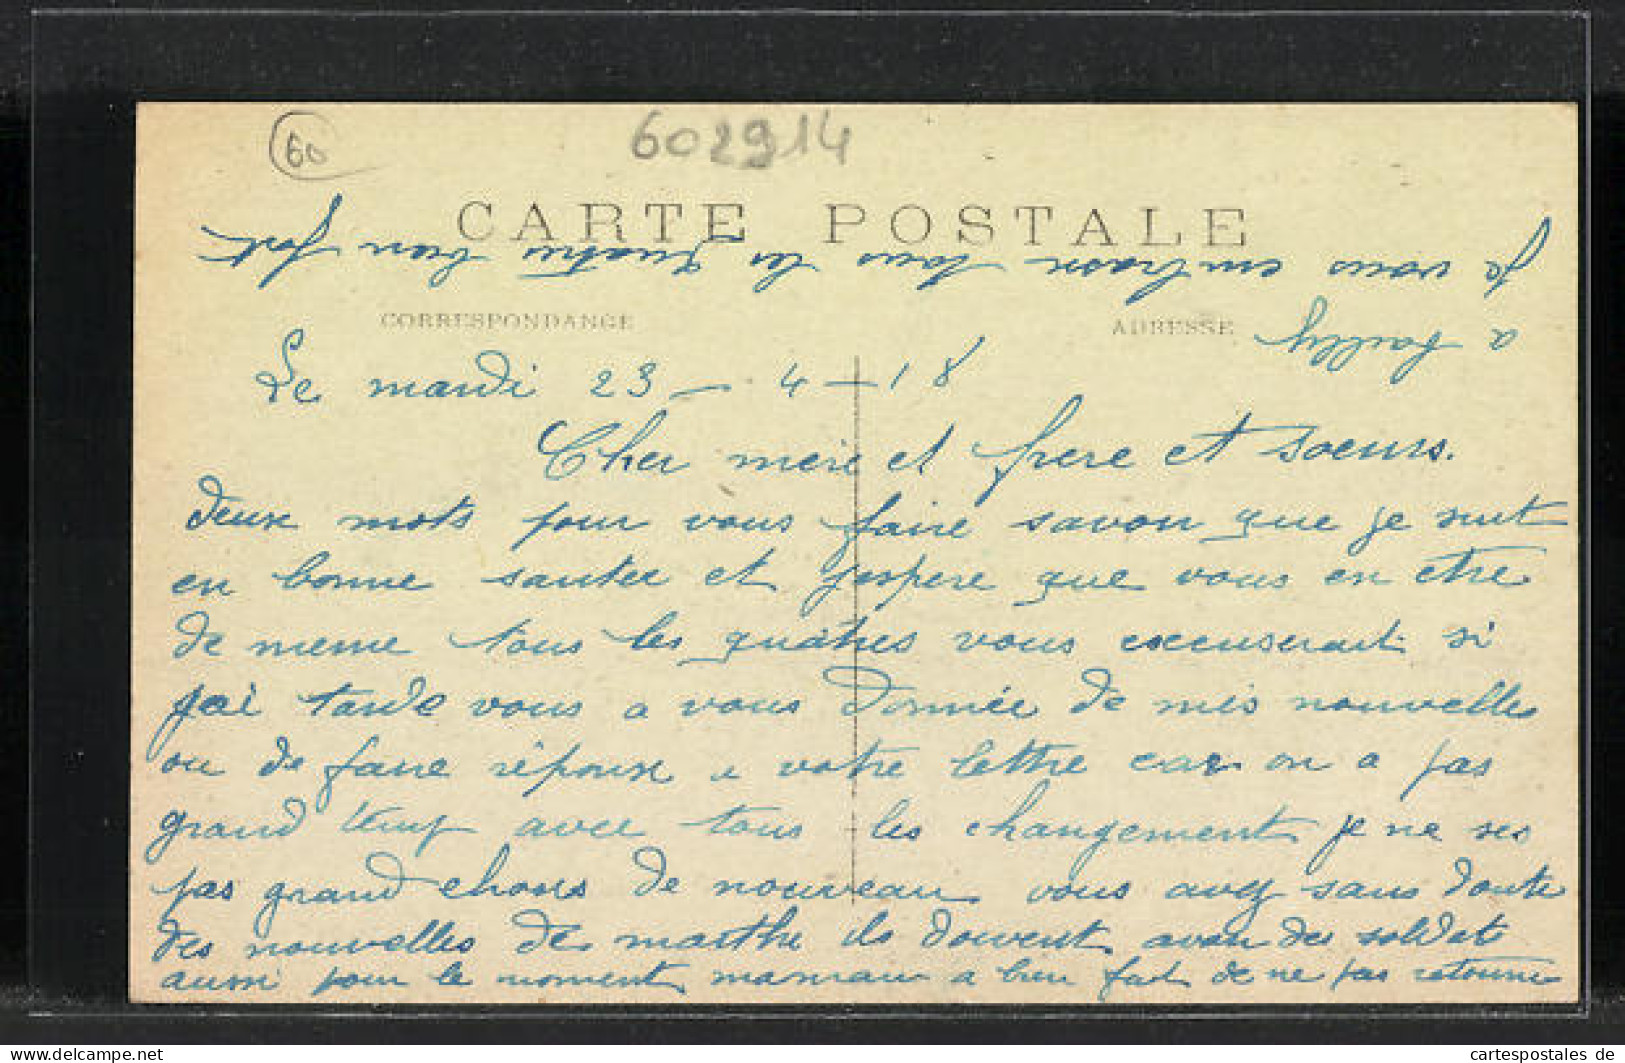 60
602914
CARTE POSTALE
CORRESPONDANCE
ADRESSE
Le mardi 23 - 4 - 18
Cher mere et frere et soeurs.
deux mots pour vous faire savoir que je suit
en bonne santee et j'espere que vous en etre
de meme tous les quatres vous excuserait si
j'ai tarde vous a vous donnée de mes nouvelles
ou de faire réponse a votre lettre car on a pas
grand temp avec tous les changement je ne ses
pas grand choses de nouveau vous avez sans doute
des nouvelles de marthe ils doivent avoir des soldats
aussi pour le moment maman a bien fait de ne pas retourne
a
Je vous embrasse tous les quatres bien fort